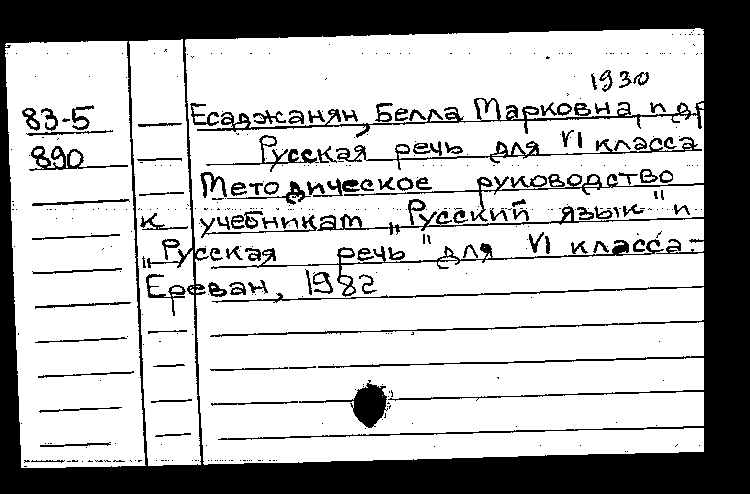 1930
83-5 Есаджанян, Белла Марковна, и др
890 Русская речь для VI класса
Методическое руководство
к учебникам „Русский язык" и
„Русская речь" для VI класса.-
Ереван, 1982